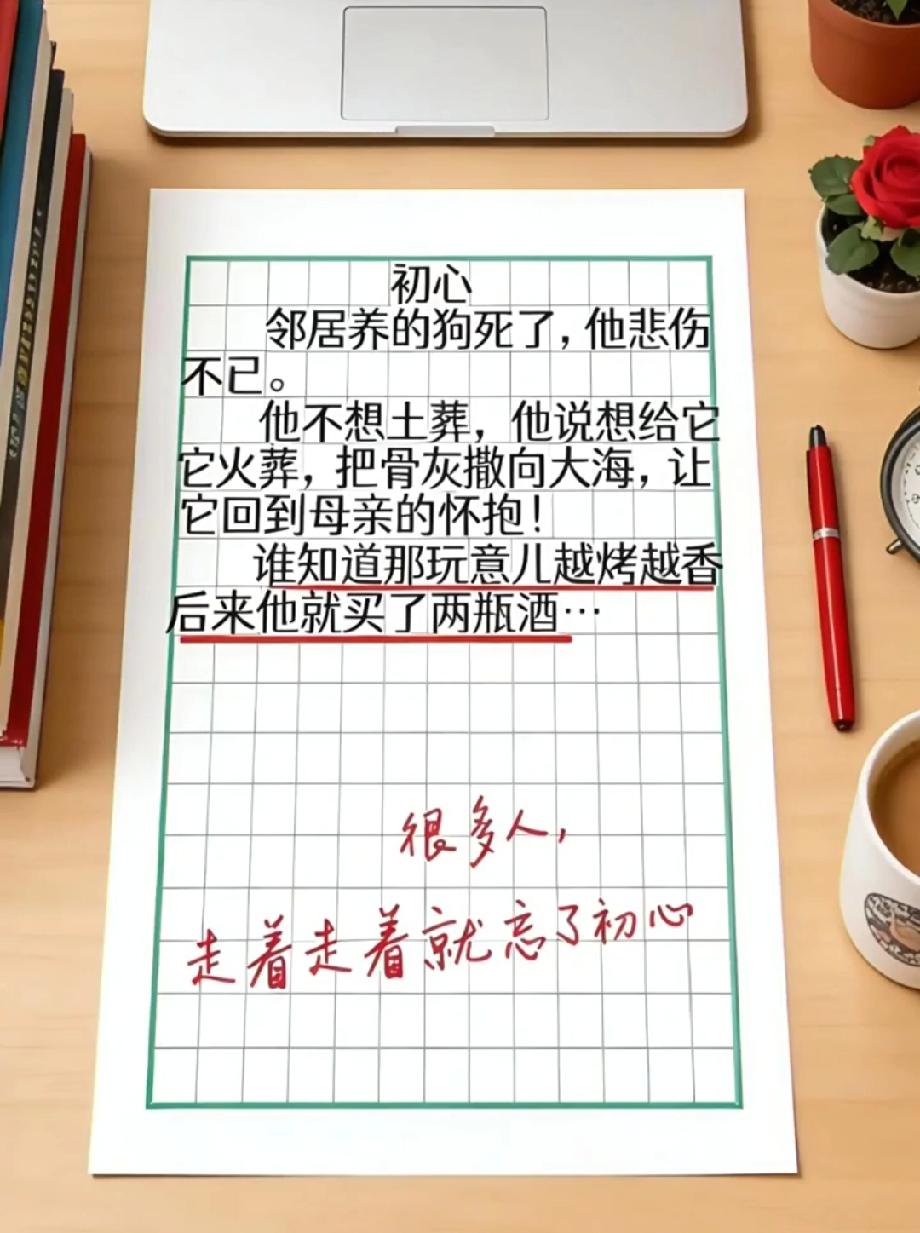 初心
邻居养的狗死了,他悲伤
不已。
他不想土葬，他说想给它
它火葬，把骨灰撒向大海，让
它回到母亲的怀抱！
谁知道那玩意儿越烤越香
后来他就买了两瓶酒…
很多人,
走着走着就忘了初心